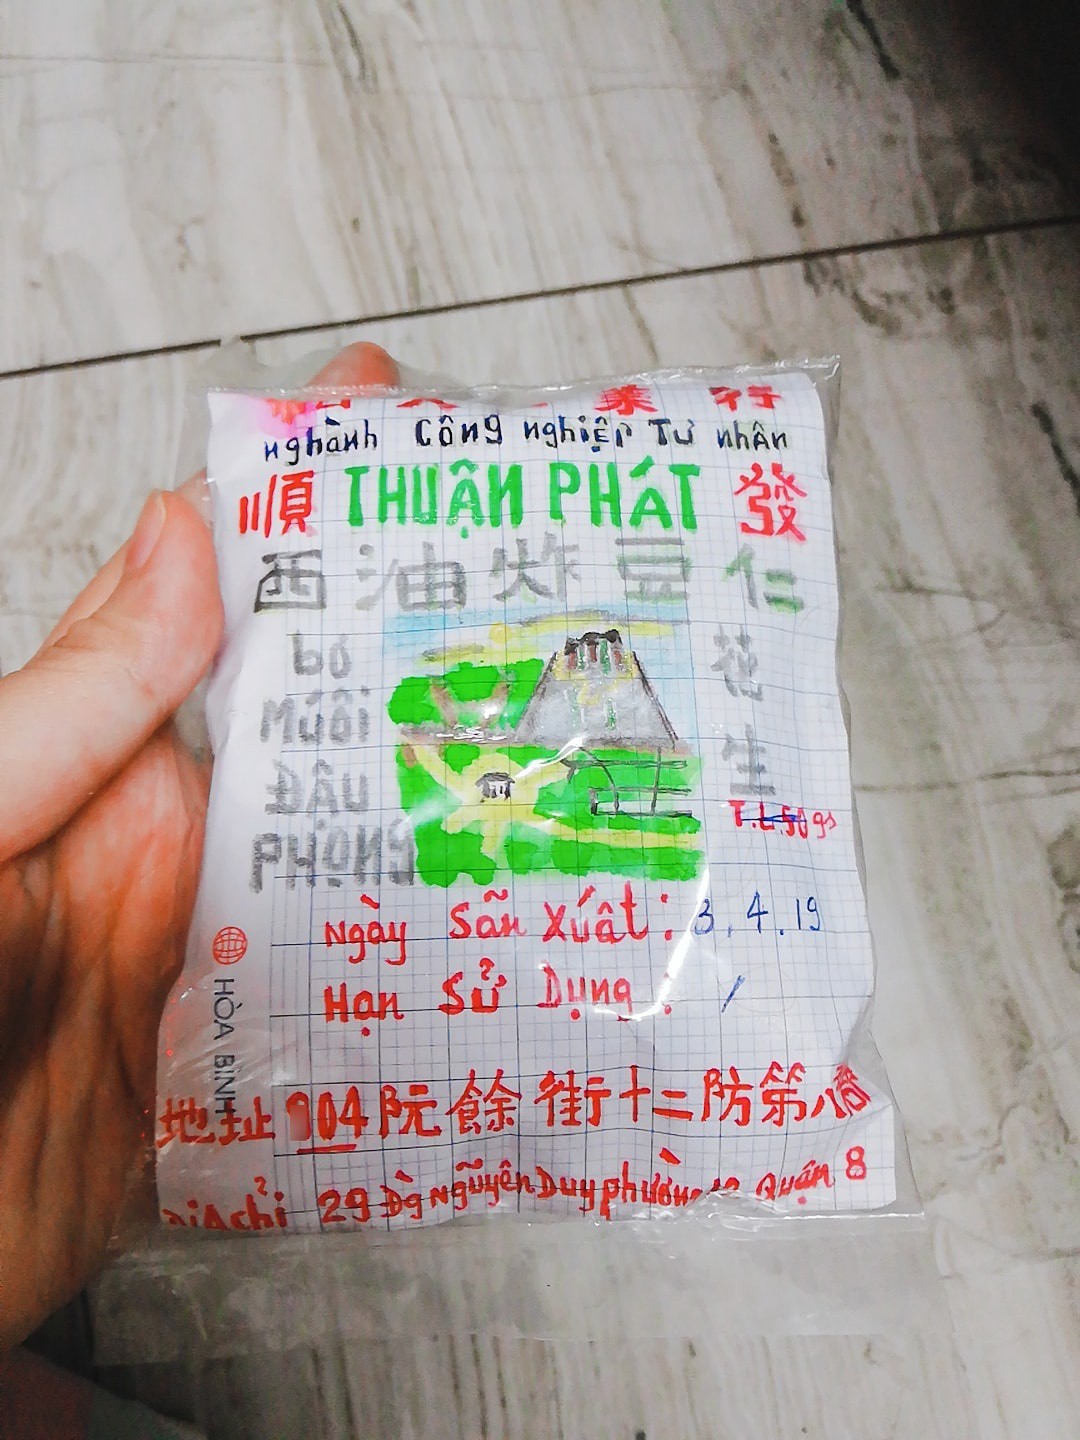 業 行
nghành Công nghiệp Tư nhân
順 THUẬN PHÁT 發
西 油 炸 豆 仁
bơ
Muối
ĐẬu
PHỘNG
花
生
T.L.50gs
Ngày Sãn Xuất: 3.4.19
Hạn Sử Dụng: /
HÒA BÌNH
地址 904 阮餘街十二防第八
ĐiAchỉ 29 Đg Nguỹên Duy phường 12 Quận 8